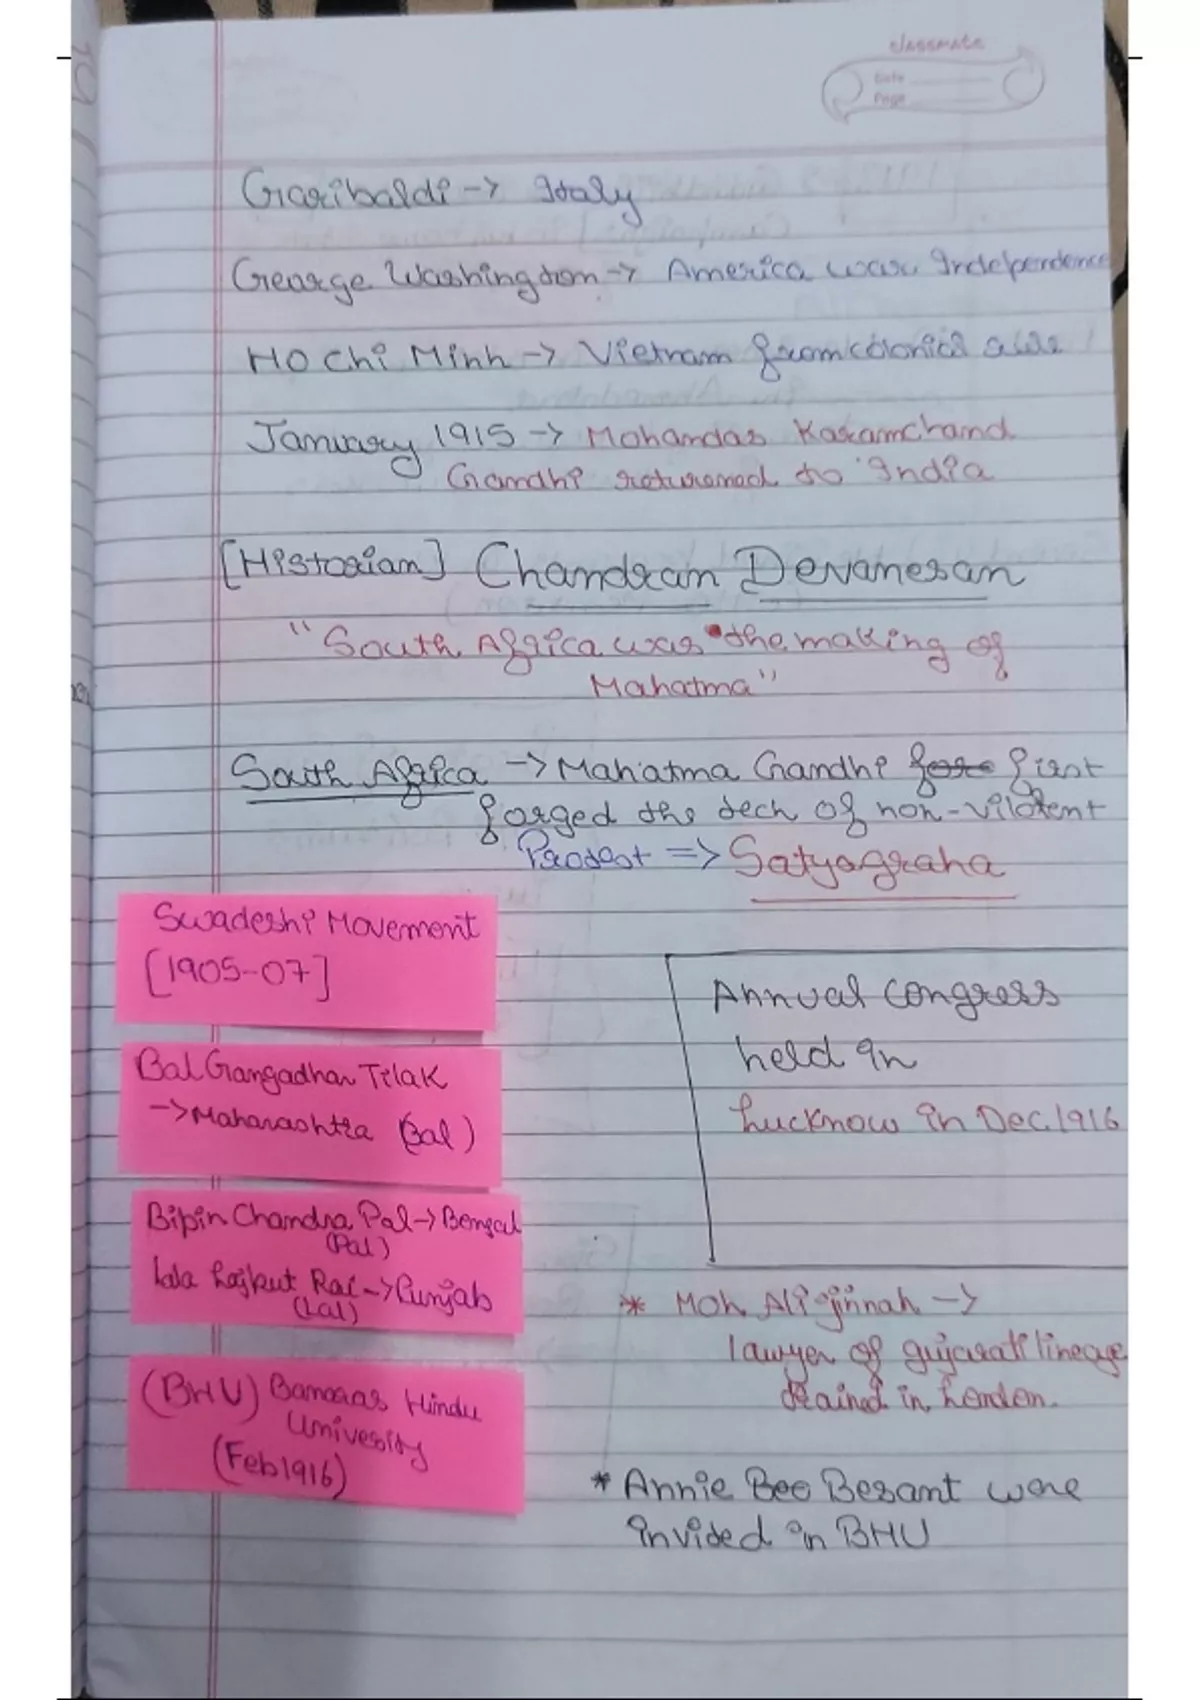 classmate
Date
Page
Garibaldi -> Italy
Gearge Washington -> America war Independence
Ho Chi Minh -> Vietnam from colonial
January 1915 -> Mohandas Karamchand
Gandhi returened to India
[Historian] Chandran Devanesan
"South Africa was the making of
Mahatma"
South Africa -> Mahatma Gandhi first
forged the tech of non-vilotent
Protest => Satyagraha
Swadeshi Movement
[1905-07]
Bal Gangadhar Tilak
-> Maharashtra (Bal)
Bipin Chandra Pal -> Bengal
(Pal)
Lala Lajput Rai -> Punjab
(Lal)
(BHU) Banaras Hindu
Univesity
(Feb 1916)
Annual congress
held in
Lucknow in Dec. 1916
* Moh Ali jinnah ->
lawyer of gujarati lineage
trained in London.
* Annie Bee Besant were
invided in BHU